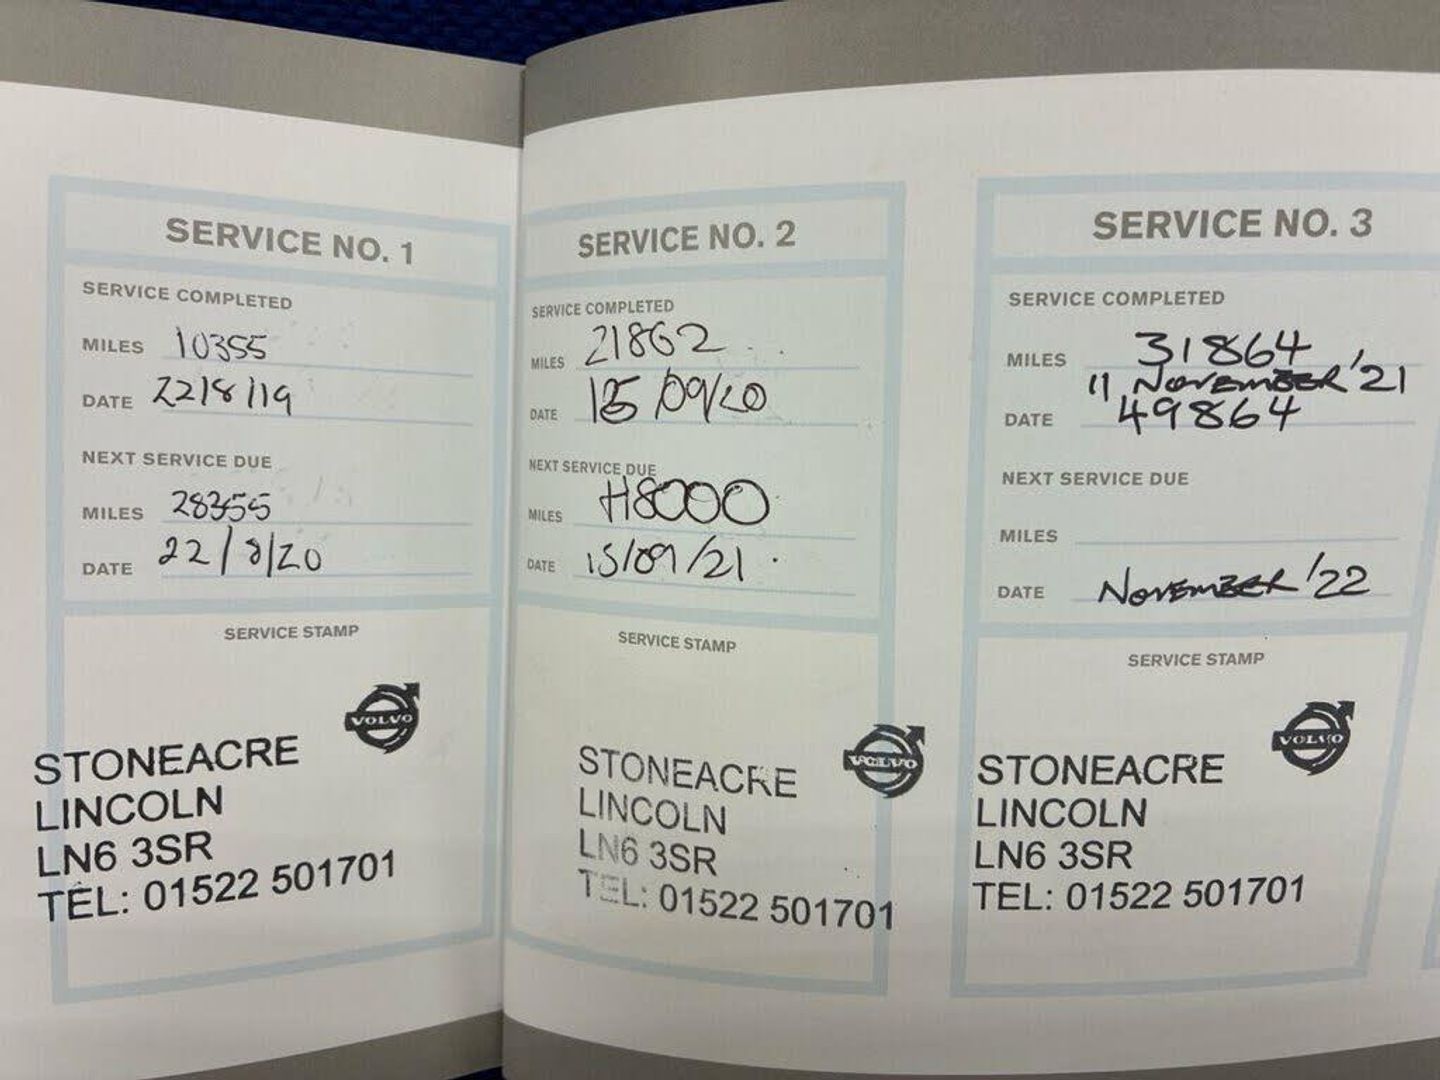 SERVICE NO. 1
SERVICE COMPLETED
MILES 10355
DATE 22/8/19
NEXT SERVICE DUE
MILES 28355
DATE 22/8/20
SERVICE STAMP
VOLVO
STONEACRE
LINCOLN
LN6 3SR
TEL: 01522 501701
SERVICE NO. 2
SERVICE COMPLETED
MILES 21862
DATE 15/09/20
NEXT SERVICE DUE
MILES +18000
DATE 15/09/21
SERVICE STAMP
VOLVO
STONEACRE
LINCOLN
LN6 3SR
TEL: 01522 501701
SERVICE NO. 3
SERVICE COMPLETED
MILES 31864
11 NOVEMBER '21
DATE 49864
NEXT SERVICE DUE
MILES
DATE NOVEMBER '22
SERVICE STAMP
VOLVO
STONEACRE
LINCOLN
LN6 3SR
TEL: 01522 501701